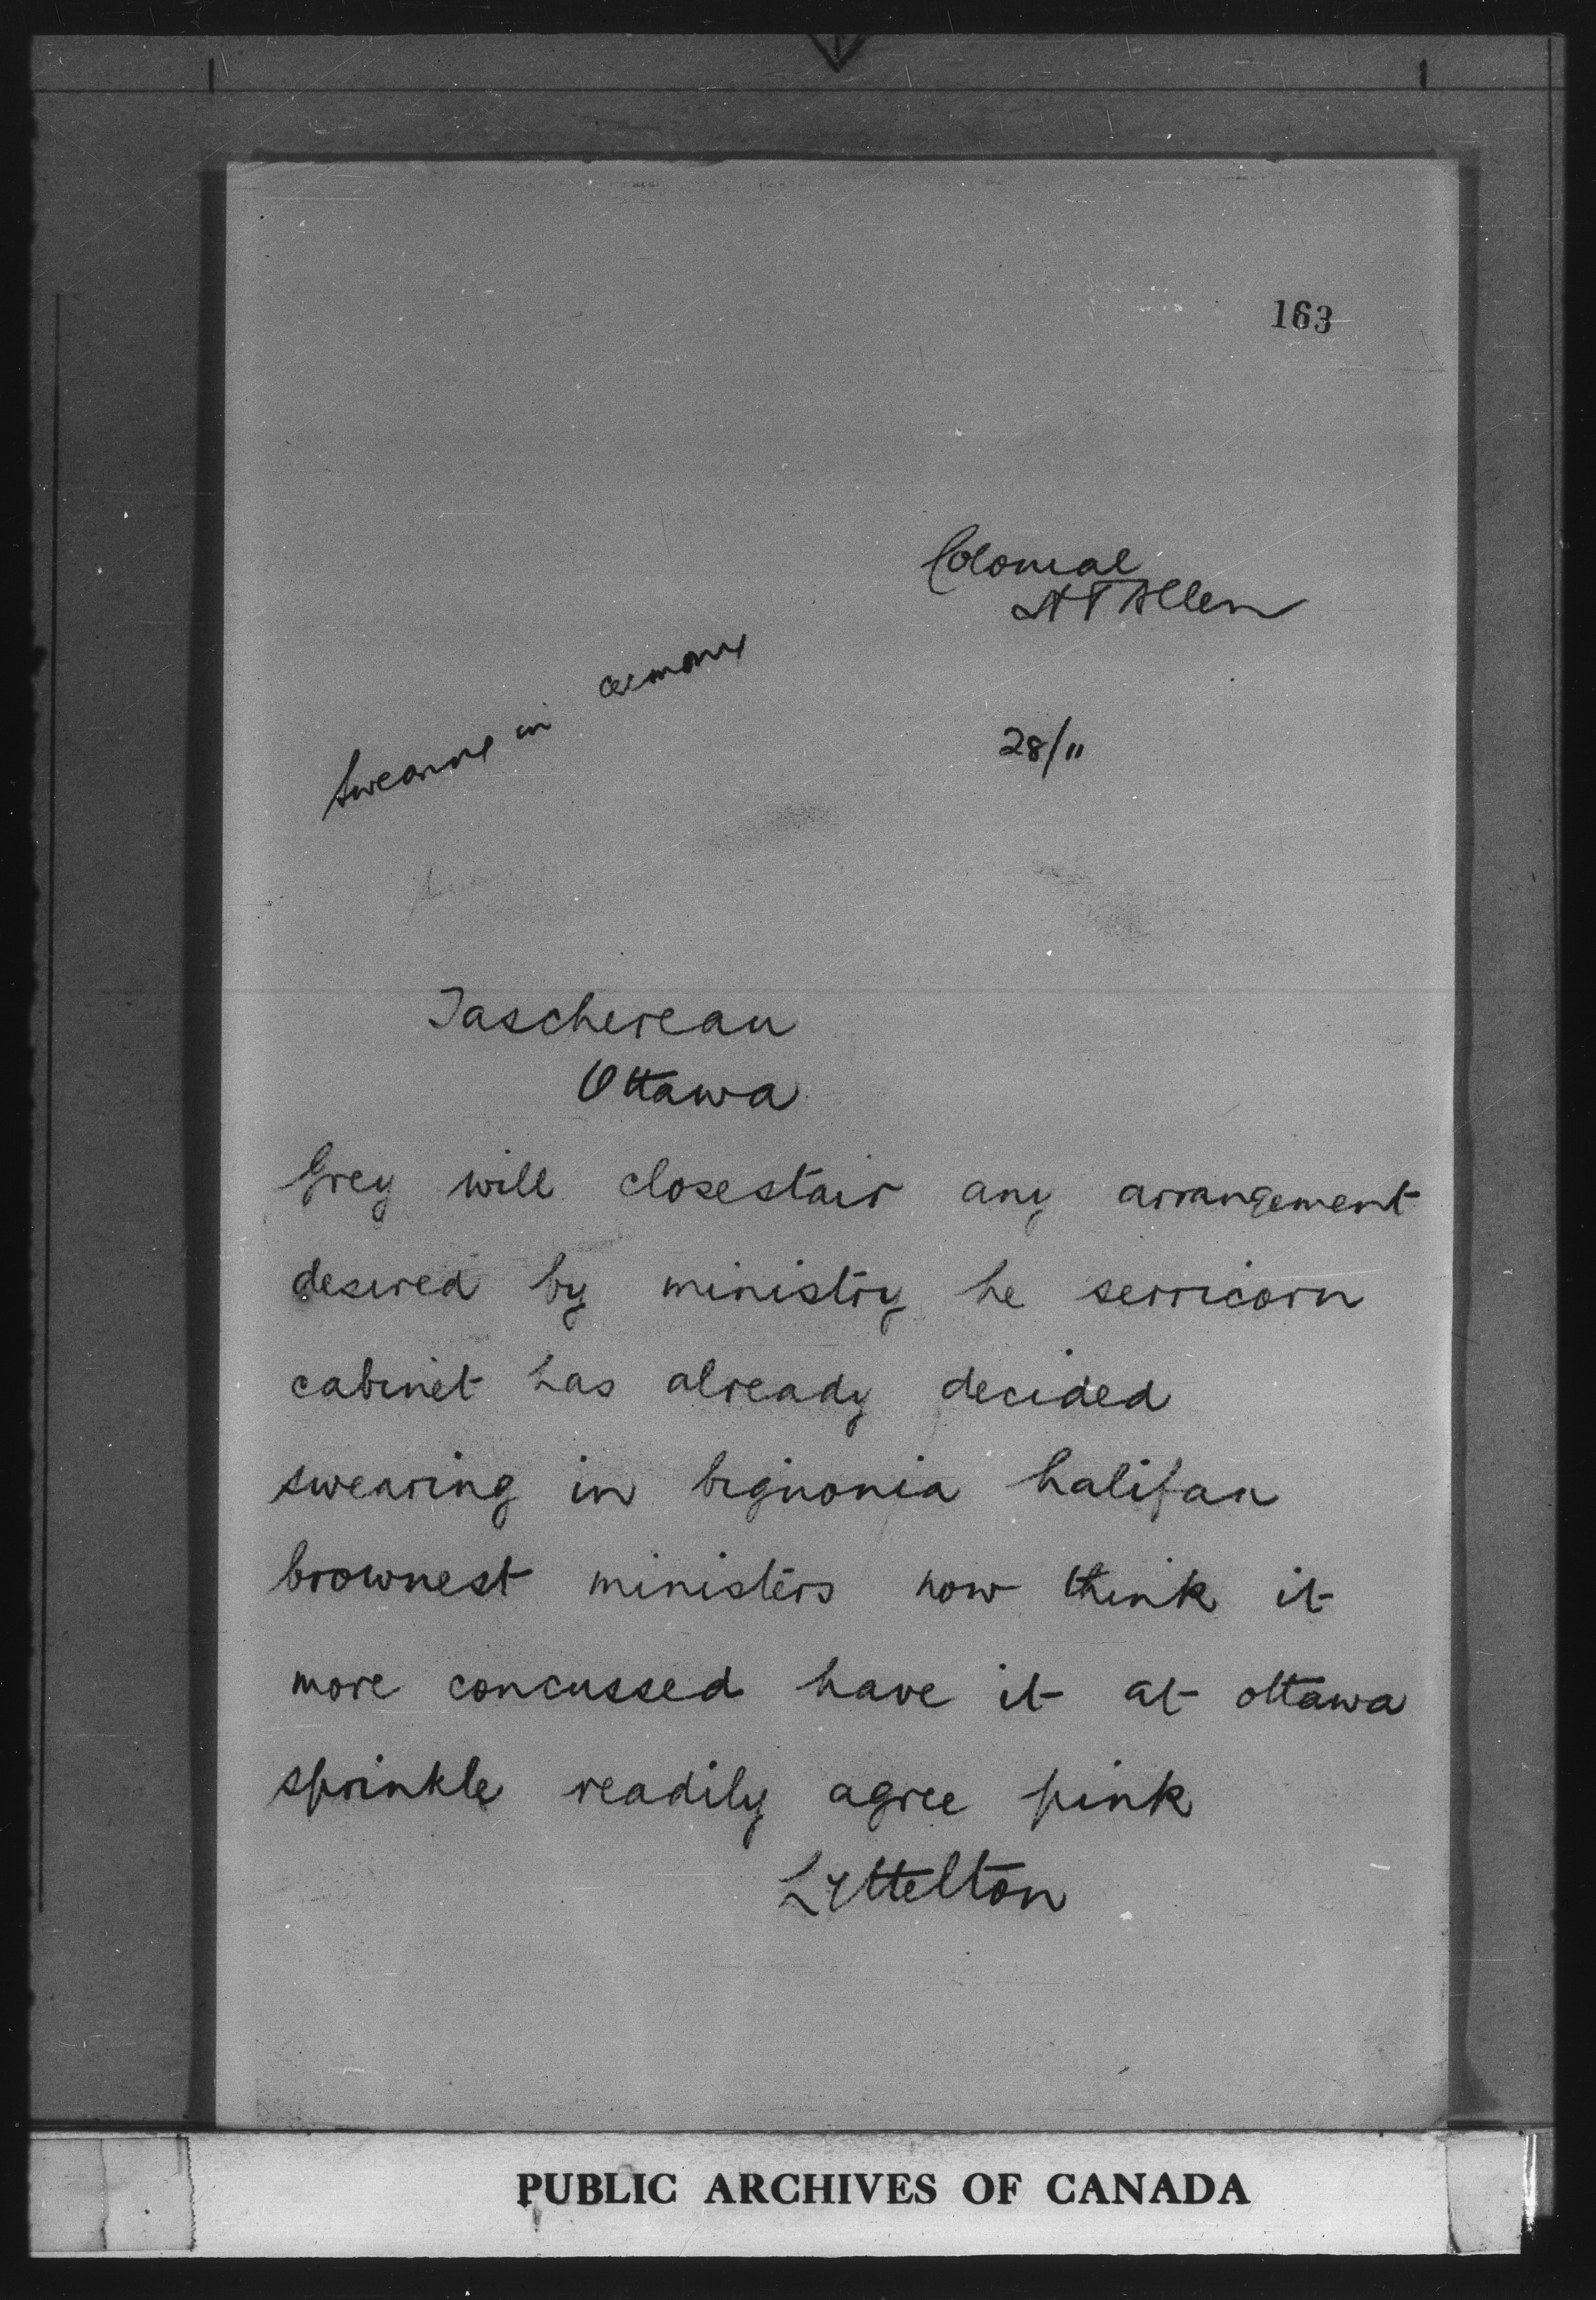 163
Colonial
H T Allen
28/11
Swearing in ceremony
Taschereau
Ottawa
Grey will closestair any arrangement
desired by ministry he serricorn
cabinet has already decided
swearing in bignonia halifax
brownest ministers now think it
more concussed have it at ottawa
sprinkle readily agree pink
Lyttelton
PUBLIC ARCHIVES OF CANADA